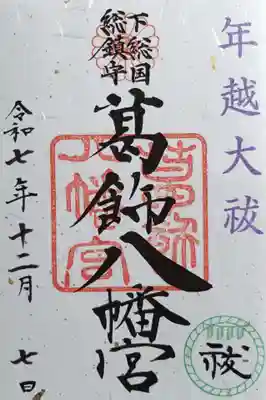 年越大祓
下総国
総鎮守
葛飾八幡宮
令和七年十二月七日
祓